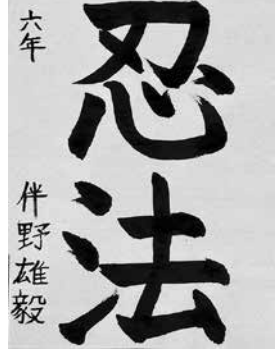 忍法
六年
伴野雄毅